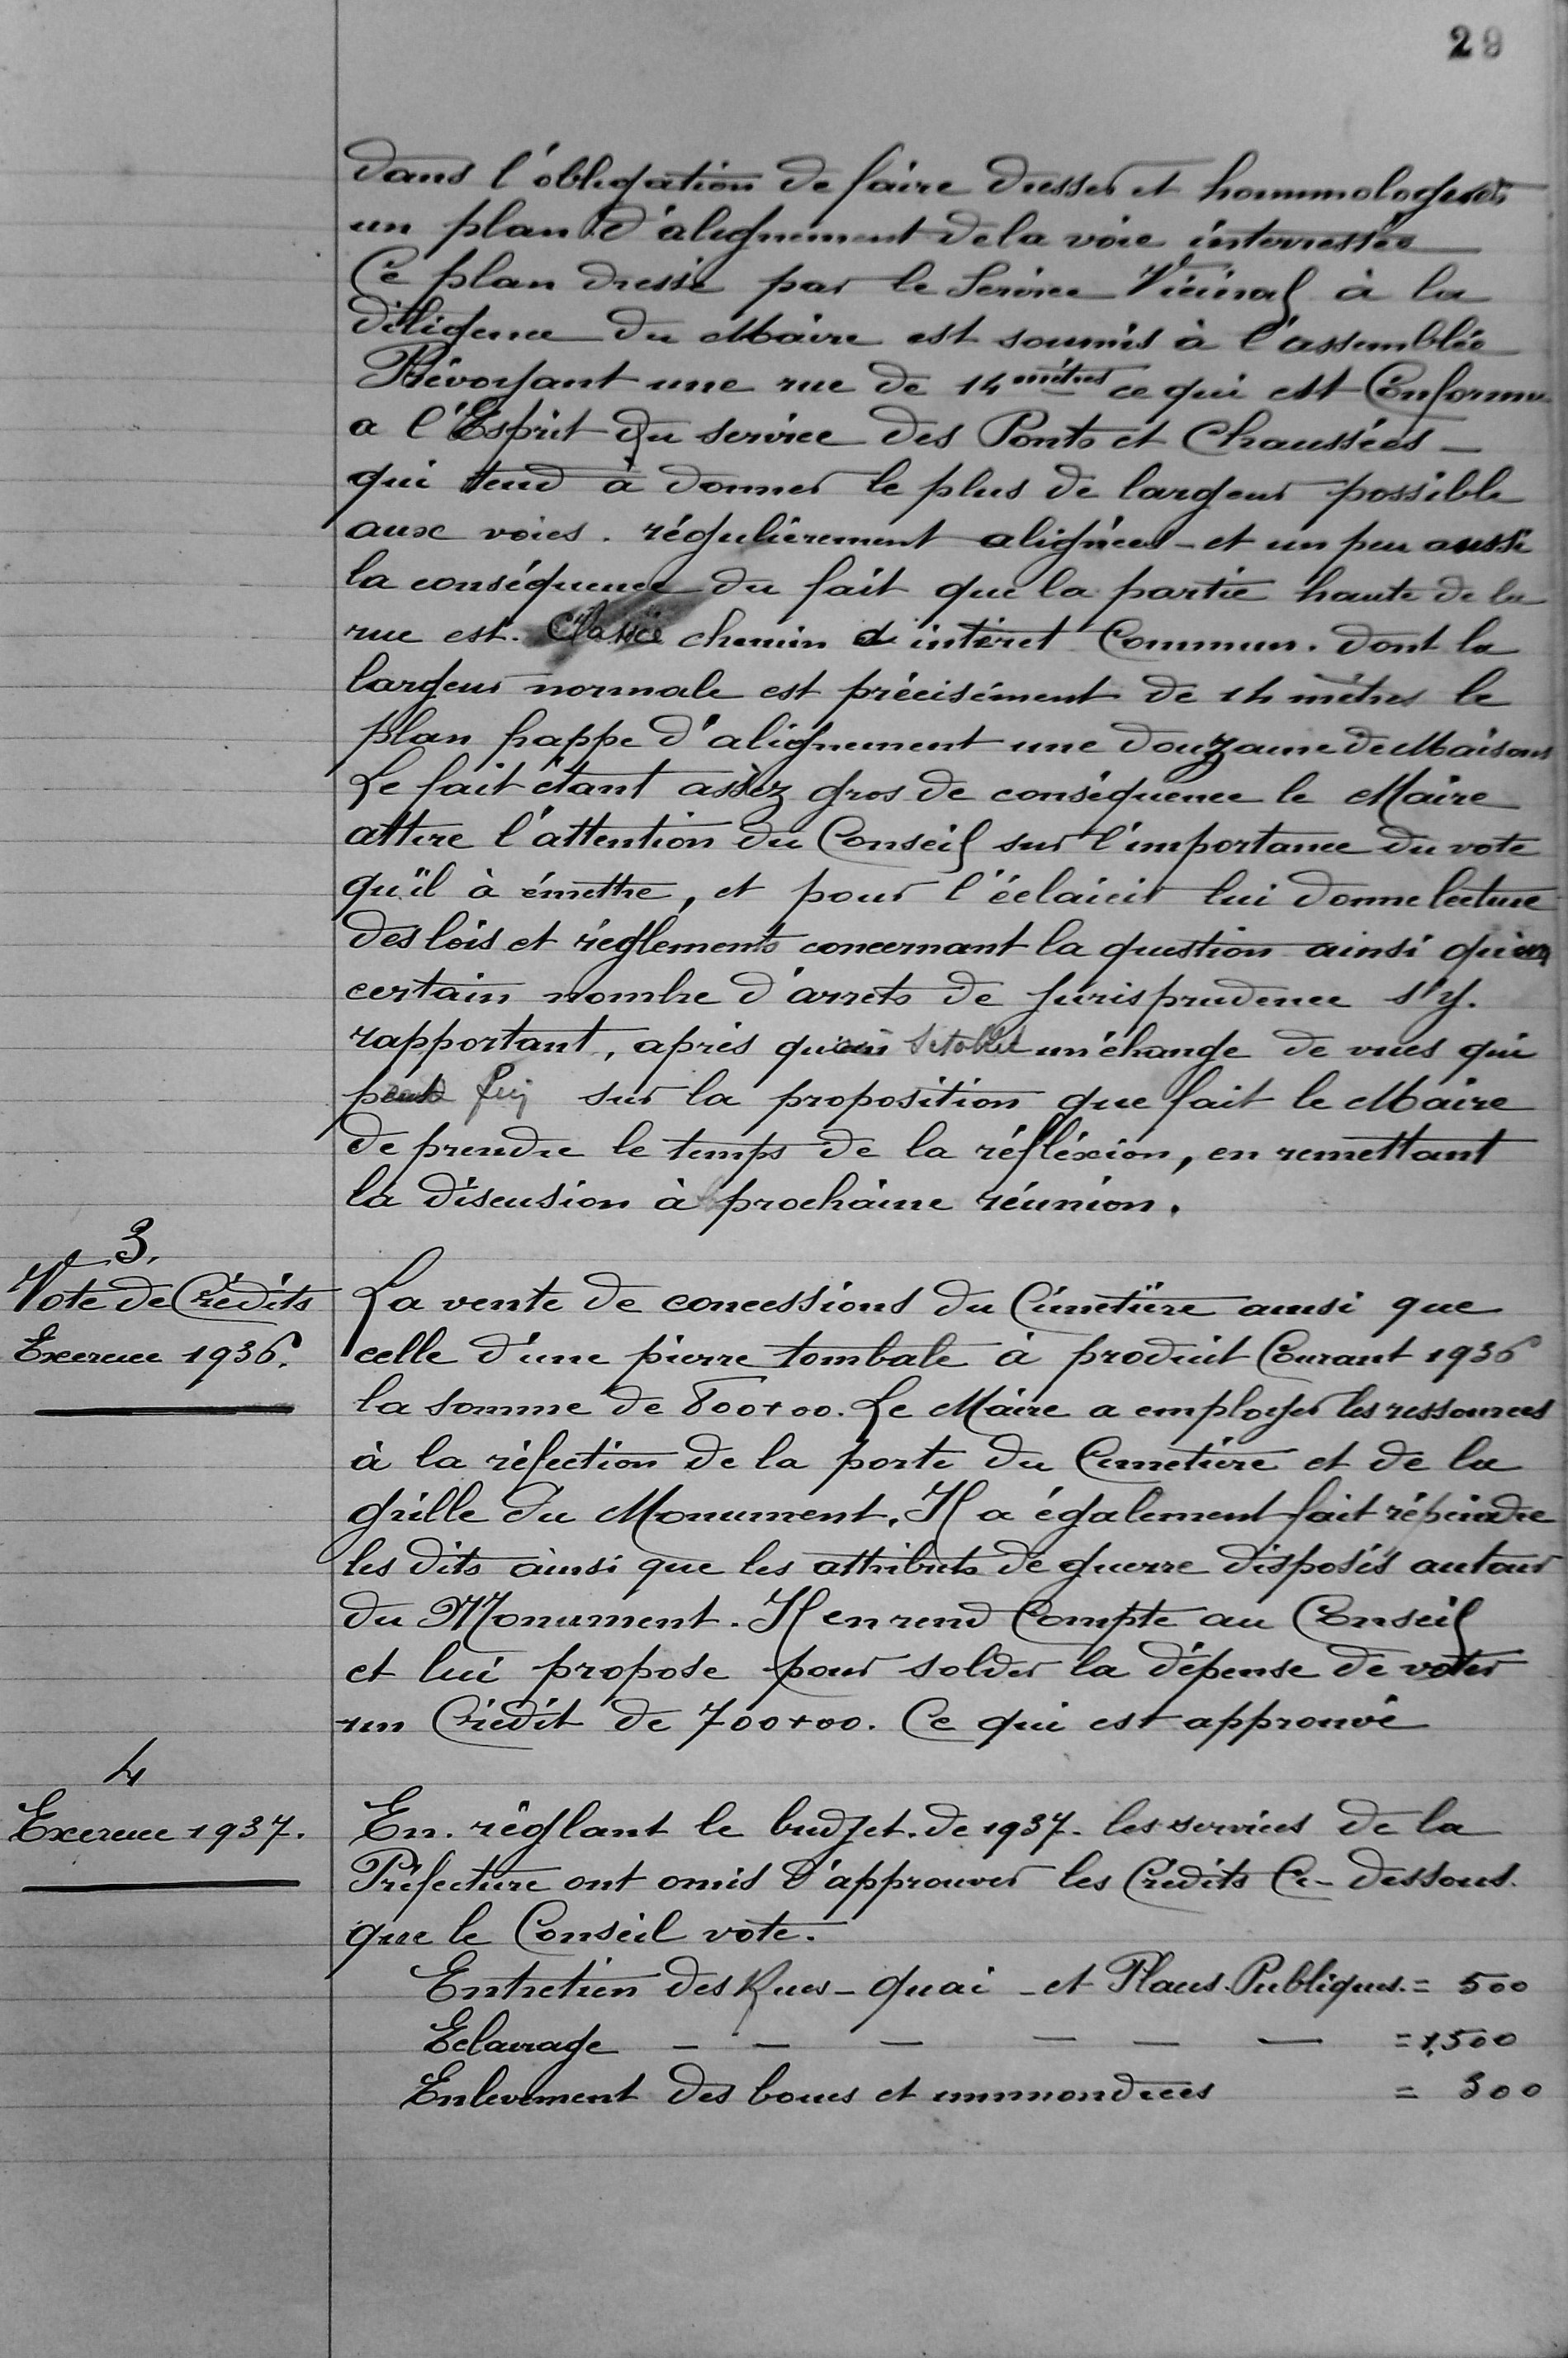 29
dans l'obligation de faire dresser et hommologuer
un plan d'alignement de la voie interressée
Ce plan dressé par le Service Vicinal à la
diligence du Maire est soumis à l'assemblée
Prévoyant une rue de 14 mètres ce qui est Conforme
a l'Esprit du service des Ponts et Chaussées -
qui tend à donner le plus de largeur possible
aux voies. régulièrement alignées - et un peu aussi
la conséquence du fait que la partie haute de la
rue est. Classée chemin d'intéret Commun. dont la
largeur normale est précisément de 14 mètres le
plan frappe d'alignement une douzaine de Maisons
Le fait étant assez gros de conséquence le Maire
attire l'attention du Conseil sur l'importance du vote
qu'il à émettre, et pour l'éclaicir lui donne lecture
des lois et réglements concernant la question ainsi qu'un
certain nombre d'arrets de Jurisprudence s'y.
rapportant, après s'etablit un échange de vues qui
prend fin sur la proposition que fait le Maire
de prendre le temps de la réfléxion, en remettant
la discusion à prochaine réunion.
3.
Vote de Crédits
Exercice 1936.
La vente de concessions du Cimetière ainsi que
celle d'une pierre tombale à produit Courant 1936
la somme de 800+00. Le Maire a employer les ressources
à la réfection de la porte du Cimetière et de la
grille du Monument. Il a également fait répeindre
les dits ainsi que les attributs de guerre disposés autour
du Monument. Il en rend Compte au Conseil
et lui propose pour solder la dépense de voter
un Crédit de 700+00. Ce qui est approuvé
4
Exercice 1937.
En. réglant le budjet. de 1937. les services de la
Préfecture ont omis d'approuver les Crédits Ci-dessous.
que le Conseil vote.
Entretien des Rues - Quai - et Places. Publiques. = 500
Eclairage - - - - - - = 1,500
Enlevement des boues et immondices = 300